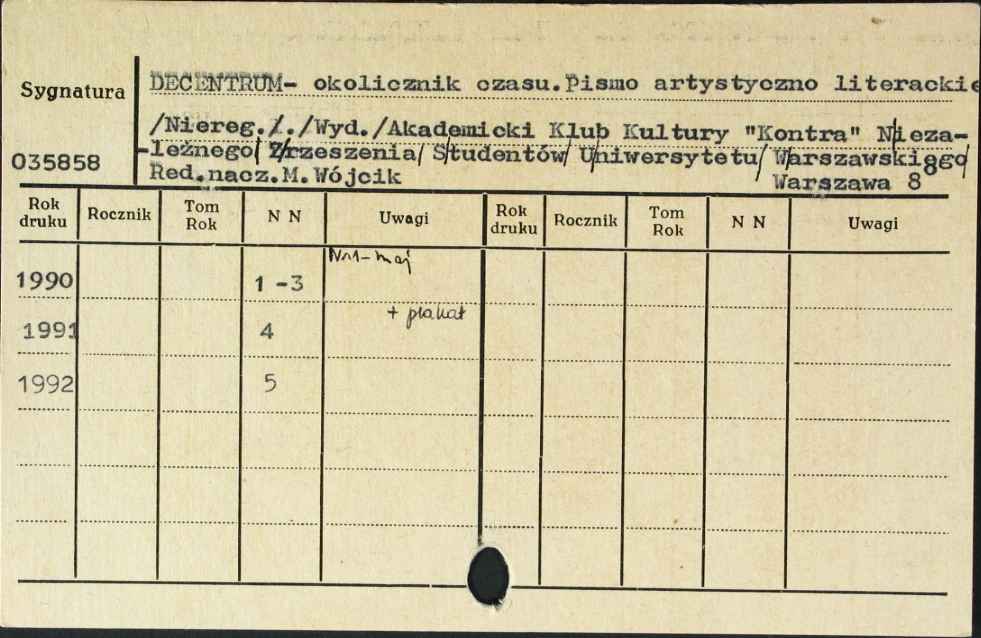 DECENTRUM- okolicznik czasu.Pismo artystyczno literackie
Sygnatura
/Niereg././Wyd./Akademicki Klub Kultury "Kontra" Nieza-
035858
-leżnego Zrzeszenia Studentów Uniwersytetu Warszawskiego
Red.nacz.M.Wójcik Warszawa 8°
Rok druku Rocznik Tom Rok N N Uwagi Rok druku Rocznik Tom Rok N N Uwagi
Nr1-maj
1990 1-3
+ plakat
1991 4
1992 5